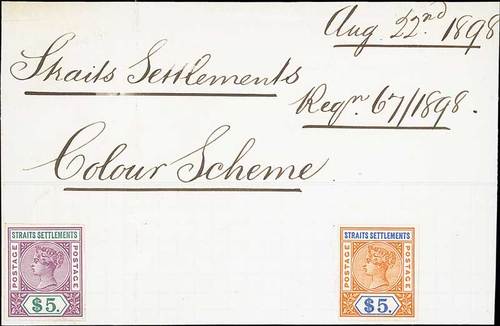 Aug. 22nd 1898
Straits Settlements
Regn. 67/1898.
Colour Scheme
STRAITS SETTLEMENTS
POSTAGE
POSTAGE
$5.
STRAITS SETTLEMENTS
POSTAGE
POSTAGE
$5.